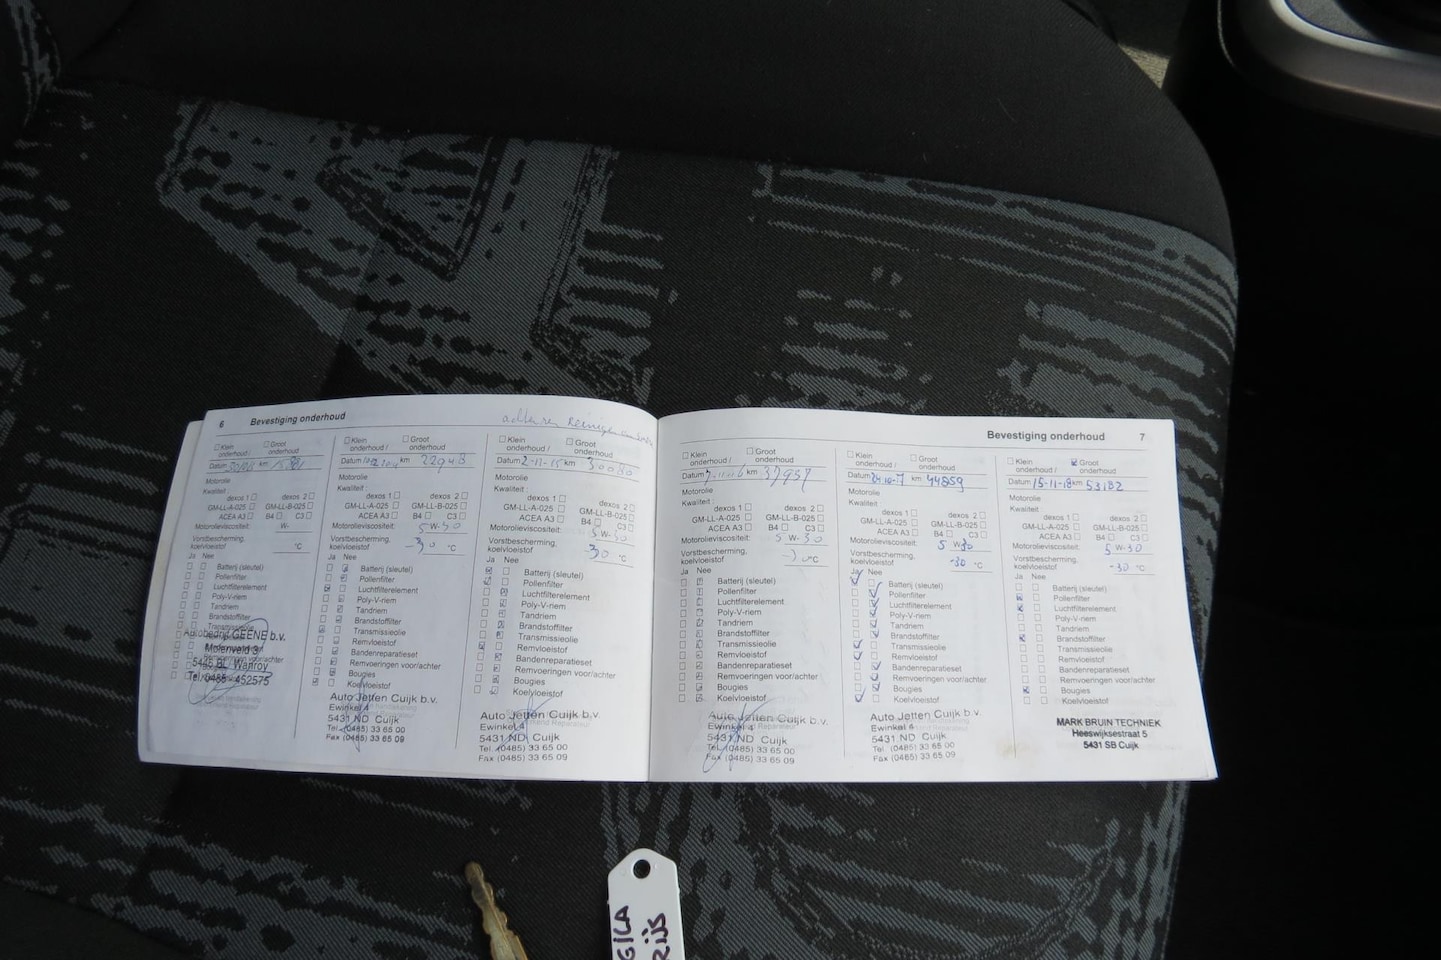 6 Bevestiging onderhoud
Klein onderhoud / Groot onderhoud
Datum km
Motorolie
Kwaliteit:
dexos 1 dexos 2
GM-LL-A-025 GM-LL-B-025
ACEA A3 B4 C3
Motorolieviscositeit: W-
Vorstbescherming, koelvloeistof °C
Ja Nee
Batterij (sleutel)
Pollenfilter
Luchtfilterelement
Poly-V-riem
Tandriem
Brandstoffilter
Autobedrijf GEENE b.v.
Molenveld 3
5446 BL Wanroy
Tel. 0485 - 452575
Klein onderhoud / Groot onderhoud
Datum km 22948
Motorolie
Kwaliteit:
dexos 1 dexos 2
GM-LL-A-025 GM-LL-B-025
ACEA A3 B4 C3
Motorolieviscositeit: 5 W-30
Vorstbescherming, koelvloeistof -30 °C
Ja Nee
Batterij (sleutel)
Pollenfilter
Luchtfilterelement
Poly-V-riem
Tandriem
Brandstoffilter
Transmissieolie
Remvloeistof
Bandenreparatieset
Remvoeringen voor/achter
Bougies
Koelvloeistof
Auto Jetten Cuijk b.v.
Ewinkel 4
5431 ND Cuijk
Tel. (0485) 33 65 00
Fax (0485) 33 65 09
Klein onderhoud / Groot onderhoud
Datum 2-11-15 km 30080
Motorolie
Kwaliteit:
dexos 1 dexos 2
GM-LL-A-025 GM-LL-B-025
ACEA A3 B4 C3
Motorolieviscositeit: 5 W-30
Vorstbescherming, koelvloeistof -30 °C
Ja Nee
Batterij (sleutel)
Pollenfilter
Luchtfilterelement
Poly-V-riem
Tandriem
Brandstoffilter
Transmissieolie
Remvloeistof
Bandenreparatieset
Remvoeringen voor/achter
Bougies
Koelvloeistof
Auto Jetten Cuijk b.v.
Ewinkel 4
5431 ND Cuijk
Tel. (0485) 33 65 00
Fax (0485) 33 65 09
Bevestiging onderhoud 7
Klein onderhoud / Groot onderhoud
Datum km 37957
Motorolie
Kwaliteit:
dexos 1 dexos 2
GM-LL-A-025 GM-LL-B-025
ACEA A3 B4 C3
Motorolieviscositeit: 5 W-30
Vorstbescherming, koelvloeistof °C
Ja Nee
Batterij (sleutel)
Pollenfilter
Luchtfilterelement
Poly-V-riem
Tandriem
Brandstoffilter
Transmissieolie
Remvloeistof
Bandenreparatieset
Remvoeringen voor/achter
Bougies
Koelvloeistof
Auto Jetten Cuijk b.v.
Ewinkel 4
5431 ND Cuijk
Tel. (0485) 33 65 00
Fax (0485) 33 65 09
Klein onderhoud / Groot onderhoud
Datum km 44859
Motorolie
Kwaliteit:
dexos 1 dexos 2
GM-LL-A-025 GM-LL-B-025
ACEA A3 B4 C3
Motorolieviscositeit: 5 W-30
Vorstbescherming, koelvloeistof -30 °C
Ja Nee
Batterij (sleutel)
Pollenfilter
Luchtfilterelement
Poly-V-riem
Tandriem
Brandstoffilter
Transmissieolie
Remvloeistof
Bandenreparatieset
Remvoeringen voor/achter
Bougies
Koelvloeistof
Auto Jetten Cuijk b.v.
Ewinkel 4
5431 ND Cuijk
Tel. (0485) 33 65 00
Fax (0485) 33 65 09
Klein onderhoud / Groot onderhoud
Datum 15-11-18 km 53182
Motorolie
Kwaliteit:
dexos 1 dexos 2
GM-LL-A-025 GM-LL-B-025
ACEA A3 B4 C3
Motorolieviscositeit: 5 W-30
Vorstbescherming, koelvloeistof -30 °C
Ja Nee
Batterij (sleutel)
Pollenfilter
Luchtfilterelement
Poly-V-riem
Tandriem
Brandstoffilter
Transmissieolie
Remvloeistof
Bandenreparatieset
Remvoeringen voor/achter
Bougies
Koelvloeistof
MARK BRUIN TECHNIEK
Heeswijksestraat 5
5431 SB Cuijk